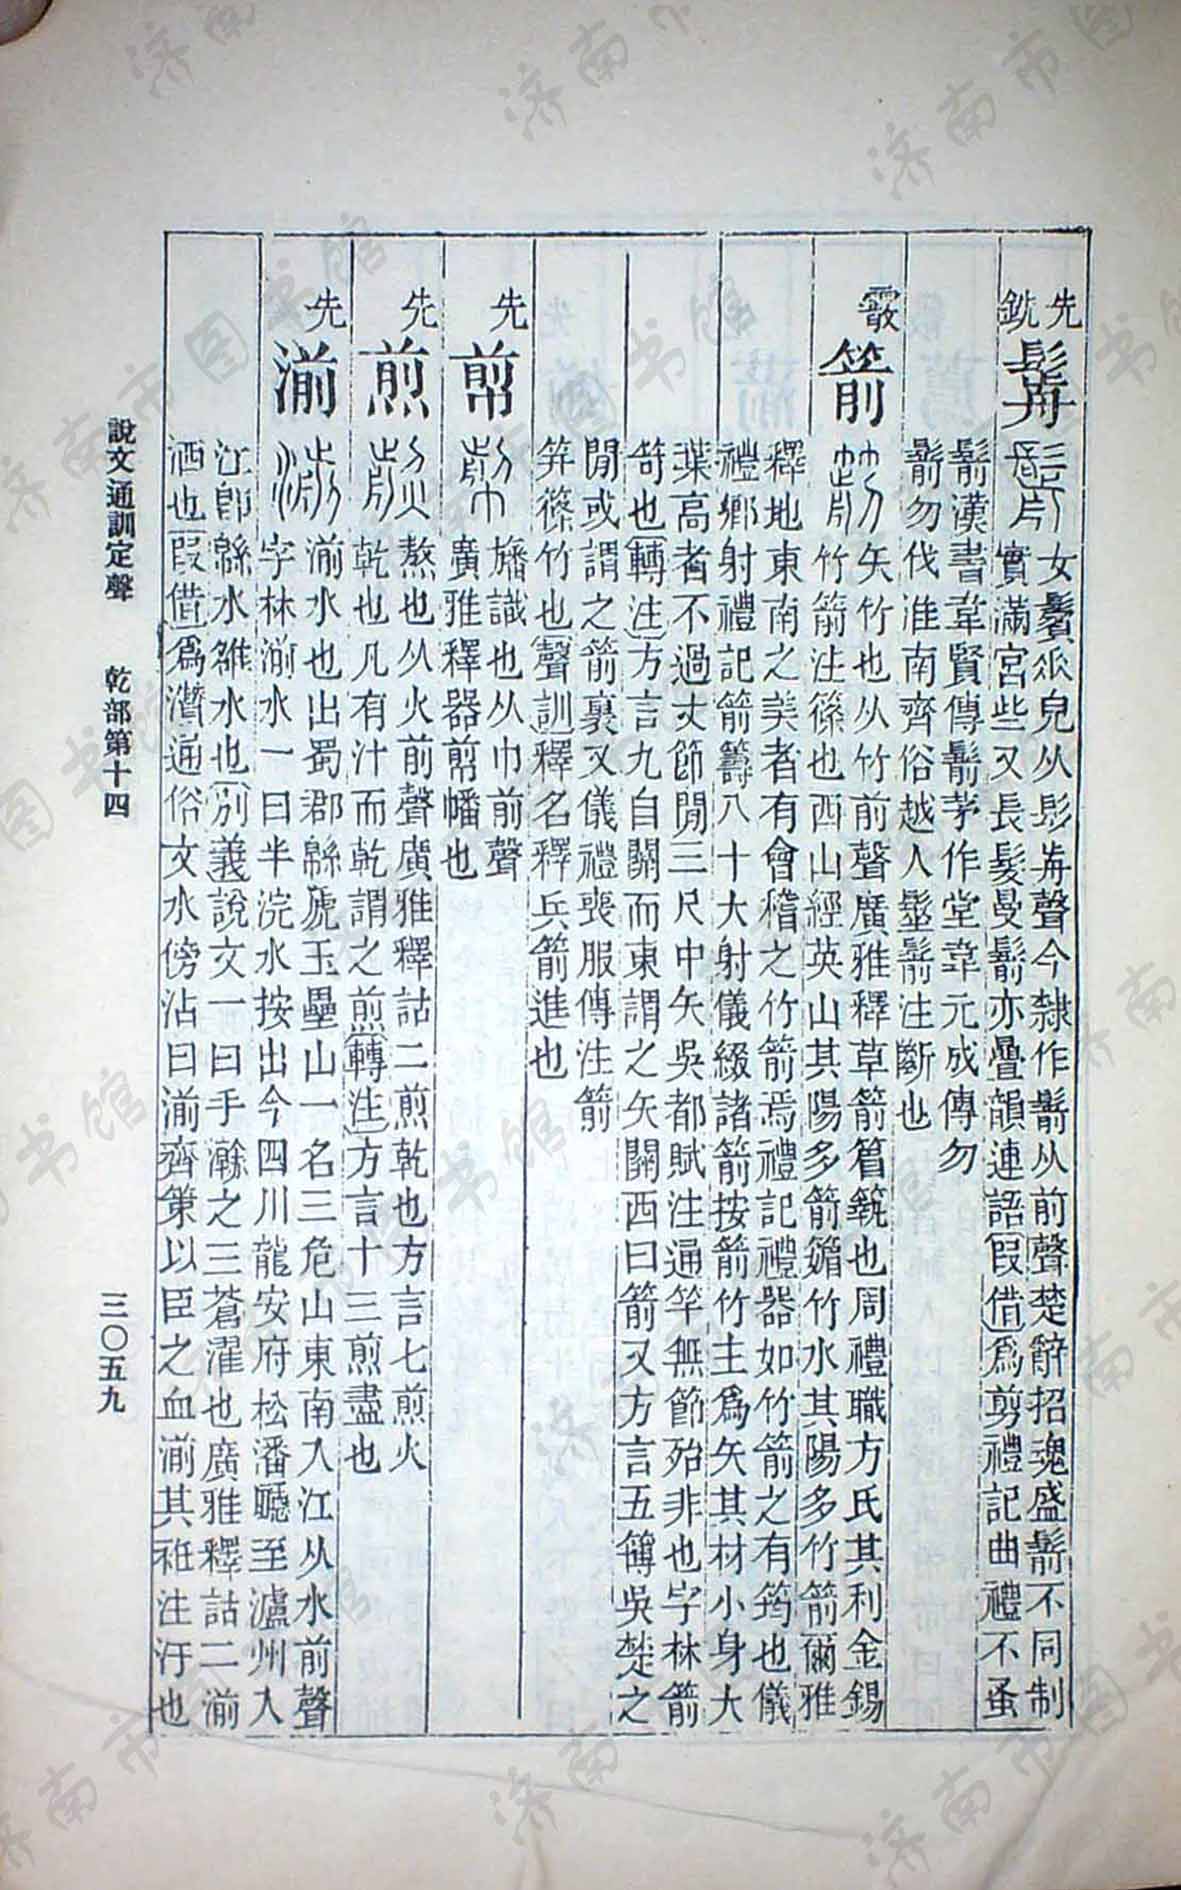 先
銑
鬋
女鬢垂皃从髟歬聲今隸作鬋从前聲楚辭招魂盛鬋不同制
實滿宮些又長髮曼鬋亦疊韻連語叚借爲剪禮記曲禮不蚤
鬋漢書韋賢傳鬋茅作堂韋元成傳勿
鬋勿伐淮南齊俗越人髽鬋注斷也
霰
箭
矢竹也从竹前聲廣雅釋草箭䈞也周禮職方氏其利金錫
竹箭注篠也西山經英山其陽多箭䉋竹水其陽多竹箭爾雅
釋地東南之美者有會稽之竹箭焉禮記禮器如竹箭之有筠也儀
禮鄉射禮記箭籌八十大射儀綴諸箭按箭竹主爲矢其材小身大
葉高者不過丈節閒三尺中矢吳都賦注通竿無節殆非也字林箭
笴也轉注方言九自關而東謂之矢關西曰箭又方言五簙吳楚之
閒或謂之箭裏又儀禮喪服傳注箭
笄篠竹也聲訓釋名釋兵箭進也
先
㡐
旛識也从巾前聲
廣雅釋器㡐幡也
先
煎
熬也从火前聲廣雅釋詁二煎乾也方言七煎火
乾也凡有汁而乾謂之煎轉注方言十三煎盡也
先
湔
湔水也出蜀郡緜虒玉壘山一名三危山東南入江从水前聲
字林湔水一曰半浣水按出今四川龍安府松潘廳至瀘州入
江卽緜水雒水也別義說文一曰手瀚之三蒼濯也廣雅釋詁二湔
洒也叚借爲濽通俗文水傍沾曰湔齊策以臣之血湔其袵注汙也
說文通訓定聲 乾部第十四 三〇五九
濟南市圖书馆